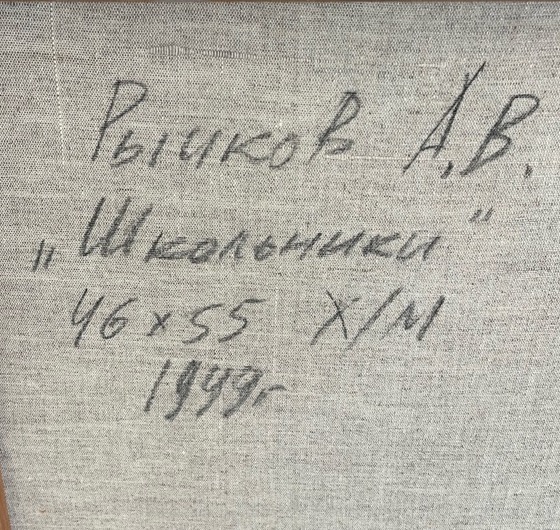 Рычков А.В.
„Школьники"
46 x 55 Х/М
1999г